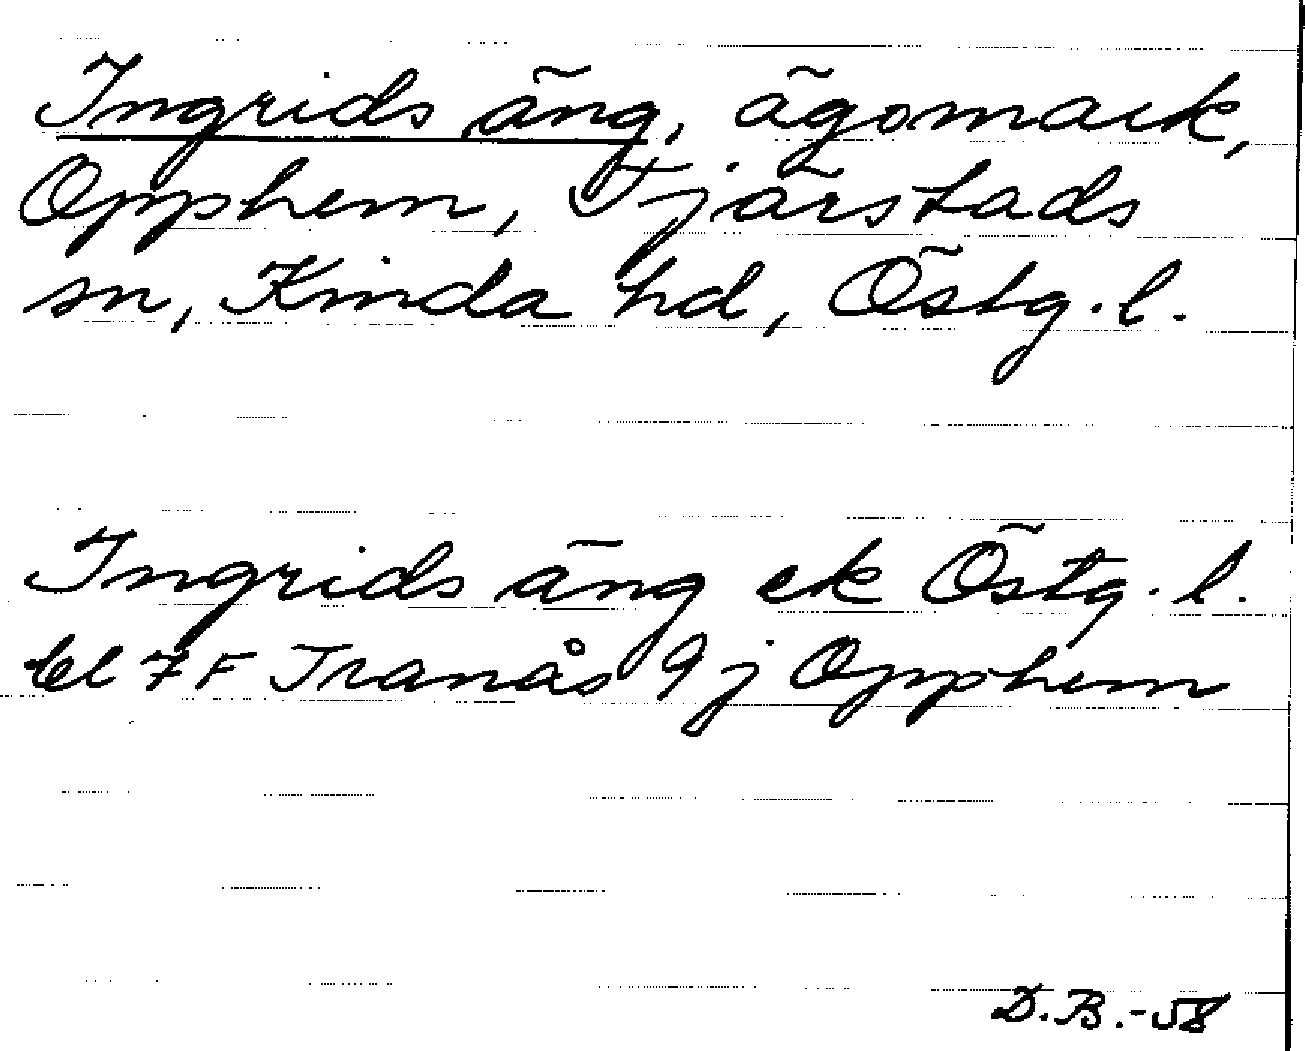 Ingrids äng, ägomark,
Opphem, Tjärstads
sn, Kinda hd, Östg. l.
Ingrids äng ek Östg. l.
bl 7 F Tranås 9 j Opphem
D.B.-58